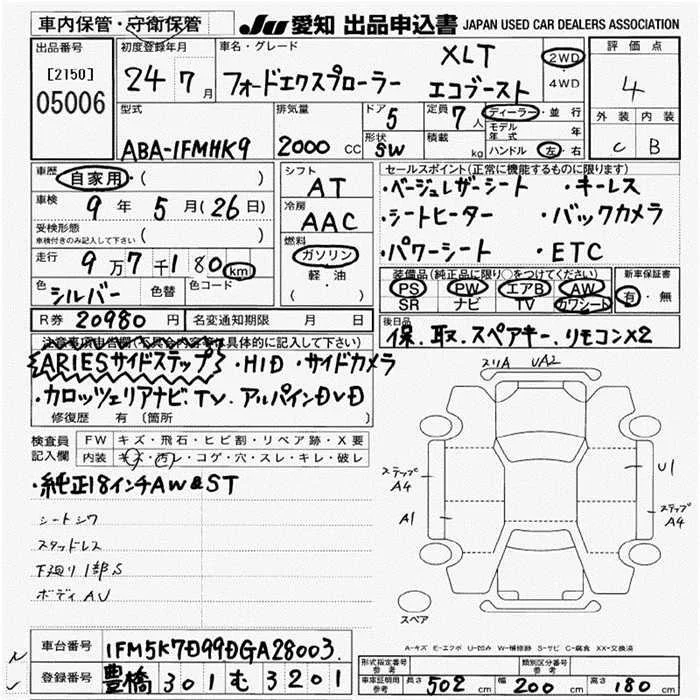 車内保管・守衛保管 JU 愛知 出品申込書 JAPAN USED CAR DEALERS ASSOCIATION
出品番号 初度登録年月 車名・グレード 評価点
[2150] 24 7月 フォードエクスプローラー XLT エコブースト 2WD・4WD 4
05006 外装 内装
型式 排気量 ドア 5 定員 7人 ディーラー・並行 C B
ABA-1FMHK9 2000 CC 形状 SW 積載 kg モデル年式 年
ハンドル 左・右
車歴 自家用・( ) シフト AT セールスポイント(正常に機能するものに限ります)
車検 9年 5月(26日) 冷房 AAC ・ベージュレザーシート ・キーレス
受検形態 車検付きのみ記入して下さい ( ) ・シートヒーター ・バックカメラ
燃料 ガソリン 軽・油 ( ) ・パワーシート ・ETC
走行 9万7千180km 装備品(純正品に限り○をつけてください) 新車保証書
色 シルバー 色替 色コード PS PW エアB AW 有・無
SR ナビ TV カワシート
R券 20980円 名変通知期限 月 日 後日品
保.取.スペアキー.リモコンX2
注意事項申告欄(不具合内容等は具体的に記入して下さい)
ARIESサイドステップ ・HID ・サイドカメラ
・カロッツェリアナビ.TV.アルパインDVD
修復歴 有 (箇所
検査員記入欄 FW キズ・飛石・ヒビ割・リペア跡・X要
内装 キズ・汚レ・コゲ・穴・スレ・キレ・破レ
・純正18インチAW&ST
シートシワ
スタッドレス
下廻り1部S
ボディAU
スリA UA2
ステップA4
U1
A1
ステップA4
スペア
A-キズ E-エクボ U-凹み W-補修跡 S-サビ C-腐食 XX-交換済
車台番号 1FM5K7D99DGA28003.
登録番号 豊橋 301 む 3201
形式指定番号 参考 類別区分番号 参考
車庫証明用 参考 長さ 502cm 幅 200cm 高さ 180cm